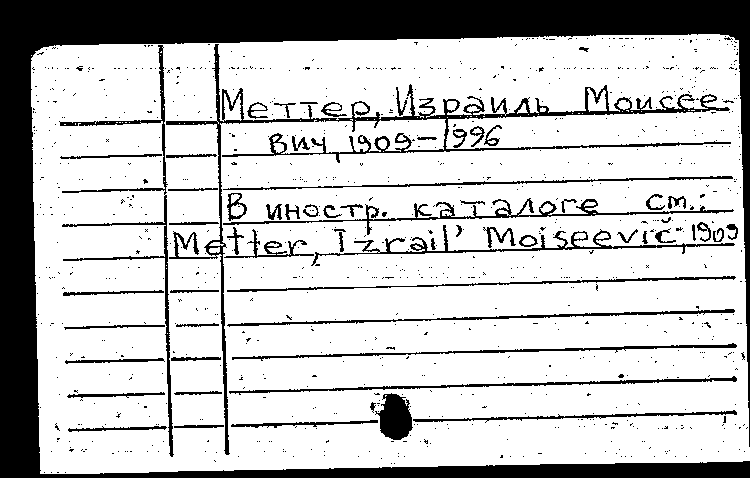 Меттер, Израиль Моисее-
вич, 1909-1996
В иностр. каталоге см.:
Metter, Izrail' Moiseevič, 1909